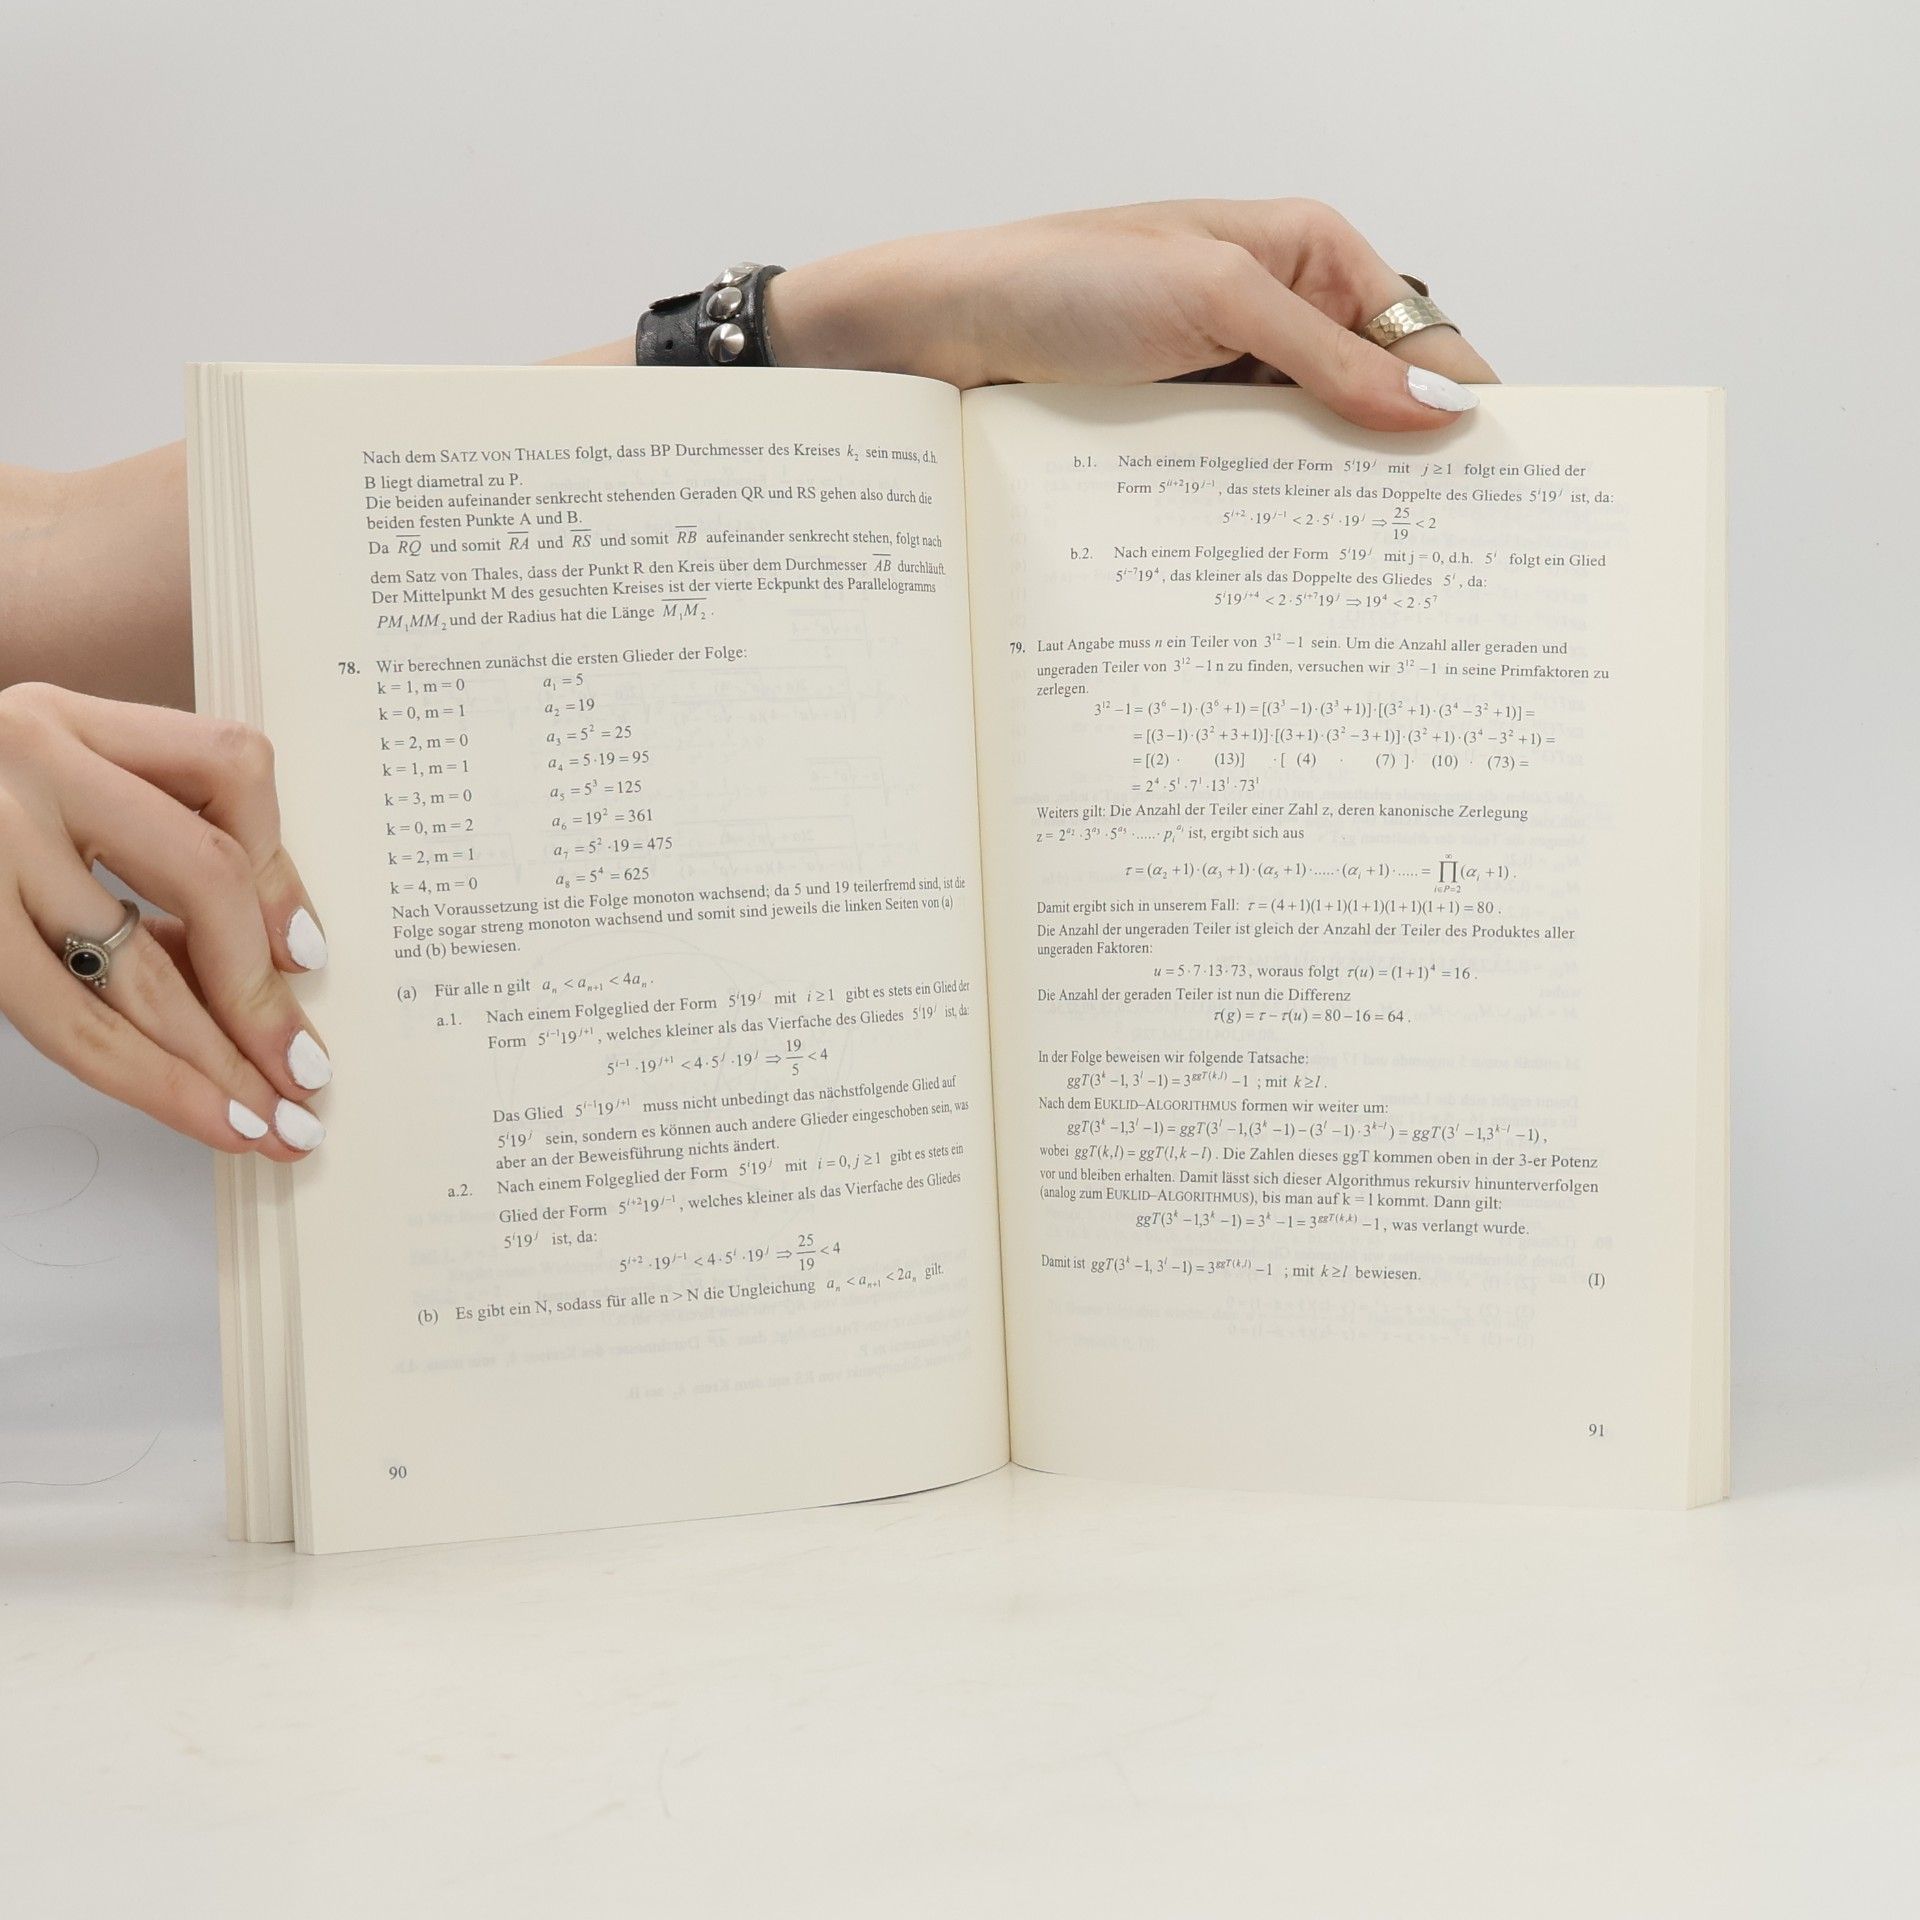 Nach dem SATZ VON THALES folgt, dass BP Durchmesser des Kreises k₂ sein muss, d.h.
B liegt diametral zu P.
Die beiden aufeinander senkrecht stehenden Geraden QR und RS gehen also durch die
beiden festen Punkte A und B.
Da R̅Q̅ und somit R̅A̅ und R̅S̅ und somit R̅B̅ aufeinander senkrecht stehen, folgt nach
dem Satz von Thales, dass der Punkt R den Kreis über dem Durchmesser A̅B̅ durchläuft.
Der Mittelpunkt M des gesuchten Kreises ist der vierte Eckpunkt des Parallelogramms
PM₁MM₂ und der Radius hat die Länge M̅₁M̅₂.
78. Wir berechnen zunächst die ersten Glieder der Folge:
k = 1, m = 0 a₁ = 5
k = 0, m = 1 a₂ = 19
k = 2, m = 0 a₃ = 5² = 25
k = 1, m = 1 a₄ = 5·19 = 95
k = 3, m = 0 a₅ = 5³ = 125
k = 0, m = 2 a₆ = 19² = 361
k = 2, m = 1 a₇ = 5²·19 = 475
k = 4, m = 0 a₈ = 5⁴ = 625
Nach Voraussetzung ist die Folge monoton wachsend; da 5 und 19 teilerfremd sind, ist die
Folge sogar streng monoton wachsend und somit sind jeweils die linken Seiten von (a)
und (b) bewiesen.
(a) Für alle n gilt aₙ < aₙ₊₁ < 4aₙ.
a.1. Nach einem Folgeglied der Form 5ⁱ19ʲ mit i ≥ 1 gibt es stets ein Glied der
Form 5ⁱ⁻¹19ʲ⁺¹, welches kleiner als das Vierfache des Gliedes 5ⁱ19ʲ ist, da:
5ⁱ⁻¹·19ʲ⁺¹ < 4·5ʲ·19ʲ ⇒ 19/5 < 4
Das Glied 5ⁱ⁻¹19ʲ⁺¹ muss nicht unbedingt das nächstfolgende Glied auf
5ⁱ19ʲ sein, sondern es können auch andere Glieder eingeschoben sein, was
aber an der Beweisführung nichts ändert.
a.2. Nach einem Folgeglied der Form 5ⁱ19ʲ mit i = 0, j ≥ 1 gibt es stets ein
Glied der Form 5ⁱ⁺²19ʲ⁻¹, welches kleiner als das Vierfache des Gliedes
5ⁱ19ʲ ist, da:
5ⁱ⁺²·19ʲ⁻¹ < 4·5ⁱ·19ʲ ⇒ 25/19 < 4
(b) Es gibt ein N, sodass für alle n > N die Ungleichung aₙ < aₙ₊₁ < 2aₙ gilt.
90
b.1. Nach einem Folgeglied der Form 5ⁱ19ʲ mit j ≥ 1 folgt ein Glied der
Form 5ⁱⁱ⁺²19ʲ⁻¹, das stets kleiner als das Doppelte des Gliedes 5ⁱ19ʲ ist, da:
5ⁱ⁺²·19ʲ⁻¹ < 2·5ⁱ·19ʲ ⇒ 25/19 < 2
b.2. Nach einem Folgeglied der Form 5ⁱ19ʲ mit j = 0, d.h. 5ⁱ folgt ein Glied
5ⁱ⁻⁷19⁴, das kleiner als das Doppelte des Gliedes 5ⁱ, da:
5ⁱ19ʲ⁺⁴ < 2·5ⁱ⁺⁷19ʲ ⇒ 19⁴ < 2·5⁷
79. Laut Angabe muss n ein Teiler von 3¹² − 1 sein. Um die Anzahl aller geraden und
ungeraden Teiler von 3¹² − 1 n zu finden, versuchen wir 3¹² − 1 in seine Primfaktoren zu
zerlegen.
3¹² − 1 = (3⁶ − 1)·(3⁶ + 1) = [(3³ − 1)·(3³ + 1)]·[(3² + 1)·(3⁴ − 3² + 1)] =
= [(3 − 1)·(3² + 3 + 1)]·[(3 + 1)·(3² − 3 + 1)]·(3² + 1)·(3⁴ − 3² + 1) =
= [(2) · (13)] ·[ (4) · (7) ]· (10) · (73) =
= 2⁴·5¹·7¹·13¹·73¹
Weiters gilt: Die Anzahl der Teiler einer Zahl z, deren kanonische Zerlegung
z = 2^a₂·3^a₃·5^a₅·.....·pᵢ^aᵢ ist, ergibt sich aus
τ = (α₂ + 1)·(α₃ + 1)·(α₅ + 1)·.....·(αᵢ + 1)·..... = ∏_{i∈P=2}^∞ (αᵢ + 1).
Damit ergibt sich in unserem Fall: τ = (4 + 1)(1 + 1)(1 + 1)(1 + 1)(1 + 1) = 80.
Die Anzahl der ungeraden Teiler ist gleich der Anzahl der Teiler des Produktes aller
ungeraden Faktoren:
u = 5·7·13·73, woraus folgt τ(u) = (1 + 1)⁴ = 16.
Die Anzahl der geraden Teiler ist nun die Differenz
τ(g) = τ − τ(u) = 80 − 16 = 64.
In der Folge beweisen wir folgende Tatsache:
ggT(3ᵏ − 1, 3ˡ − 1) = 3^ggT(k,l) − 1 ; mit k ≥ l.
Nach dem EUKLID–ALGORITHMUS formen wir weiter um:
ggT(3ᵏ − 1,3ˡ − 1) = ggT(3ˡ − 1,(3ᵏ − 1) − (3ˡ − 1)·3ᵏ⁻ˡ) = ggT(3ˡ − 1,3ᵏ⁻ˡ − 1),
wobei ggT(k,l) = ggT(l,k − l). Die Zahlen dieses ggT kommen oben in der 3-er Potenz
vor und bleiben erhalten. Damit lässt sich dieser Algorithmus rekursiv hinunterverfolgen
(analog zum EUKLID–ALGORITHMUS), bis man auf k = l kommt. Dann gilt:
ggT(3ᵏ − 1,3ᵏ − 1) = 3ᵏ − 1 = 3^ggT(k,k) − 1, was verlangt wurde.
Damit ist ggT(3ᵏ − 1, 3ˡ − 1) = 3^ggT(k,l) − 1 ; mit k ≥ l bewiesen. (I)
91